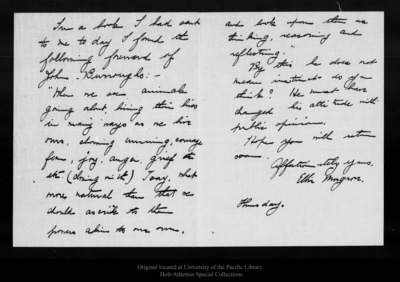 In a book I had sent
to me to day I found the
following foreword of
John Burroughs: -
"When we see animals
going about, living their lives
in many ways as we live
ours, showing cunning, courage
fear, joy, anger, grief etc
etc (doing with) I say, what
more natural than that we
should ascribe to them
powers akin to our own.
and look upon them as
thinking, reasoning and
reflecting."
By this he does not
mean instinct do you
think? He must have
changed his attitude with
public opinion.
Hope you will return
soon.
Affectionately yours,
Ellie
Thursday.
Original located at University of the Pacific Library
Holt-Atherton Special Collections